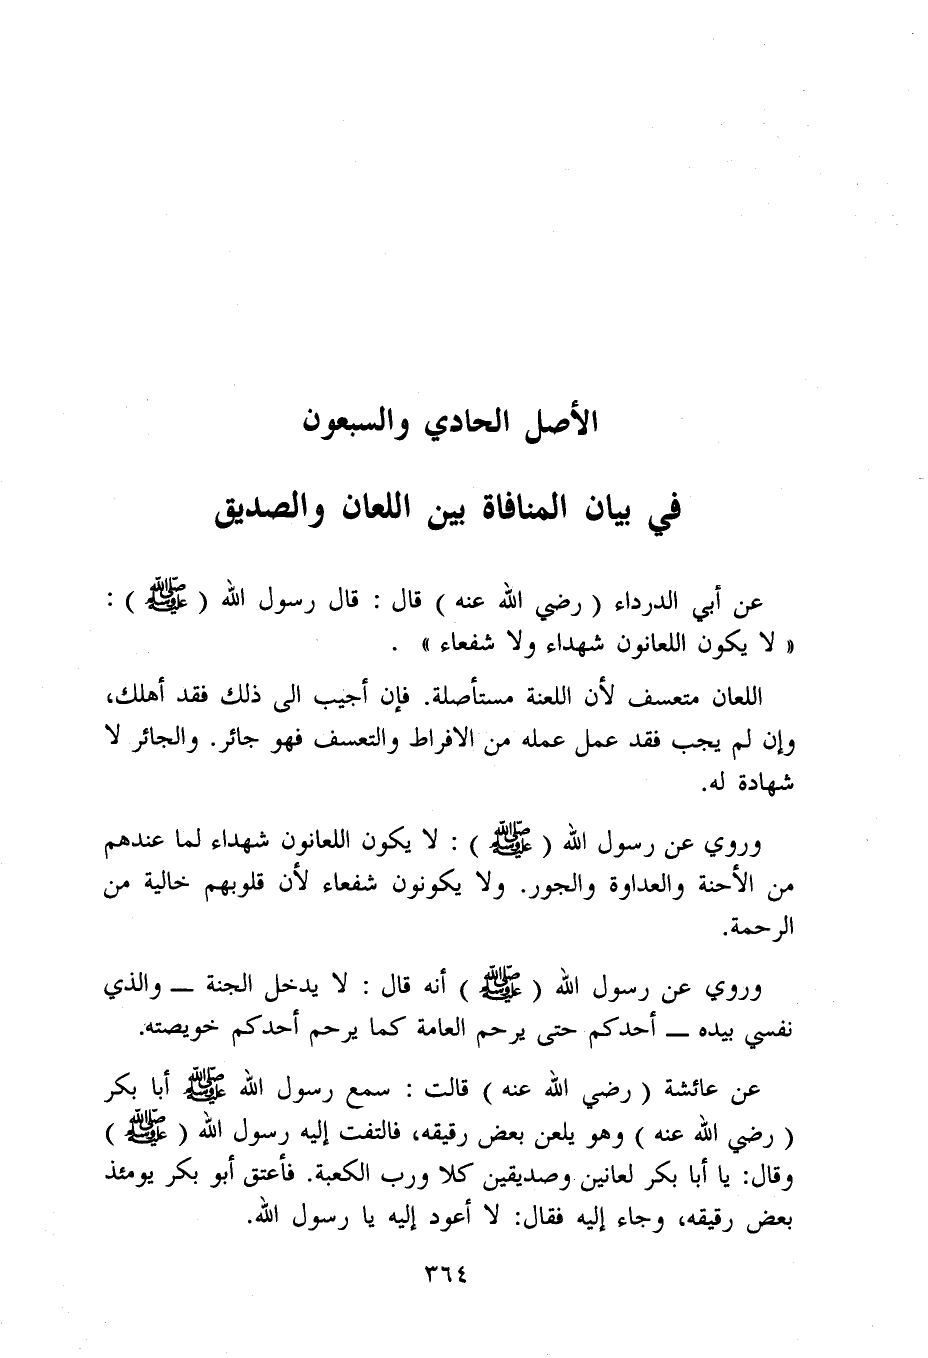 الأصل الحادي والسبعون
في بيان المنافاة بين اللعان والصديق
عن أبي الدرداء ( رضي الله عنه ) قال : قال رسول الله ( ﷺ ) :
« لا يكون اللعانون شهداء ولا شفعاء » .
اللعان متعسف لأن اللعنة مستأصلة. فإن أجيب الى ذلك فقد أهلك،
وإن لم يجب فقد عمل عمله من الافراط والتعسف فهو جائر. والجائر لا
شهادة له.
وروي عن رسول الله ( ﷺ ) : لا يكون اللعانون شهداء لما عندهم
من الأحنة والعداوة والجور. ولا يكونون شفعاء لأن قلوبهم خالية من
الرحمة.
وروي عن رسول الله ( ﷺ ) أنه قال : لا يدخل الجنة — والذي
نفسي بيده — أحدكم حتى يرحم العامة كما يرحم أحدكم خويصته.
عن عائشة ( رضي الله عنه ) قالت : سمع رسول الله ﷺ أبا بكر
( رضي الله عنه ) وهو يلعن بعض رقيقه، فالتفت إليه رسول الله ( ﷺ )
وقال: يا أبا بكر لعانين وصديقين كلا ورب الكعبة. فأعتق أبو بكر يومئذ
بعض رقيقه، وجاء إليه فقال: لا أعود إليه يا رسول الله.
٣٦٤